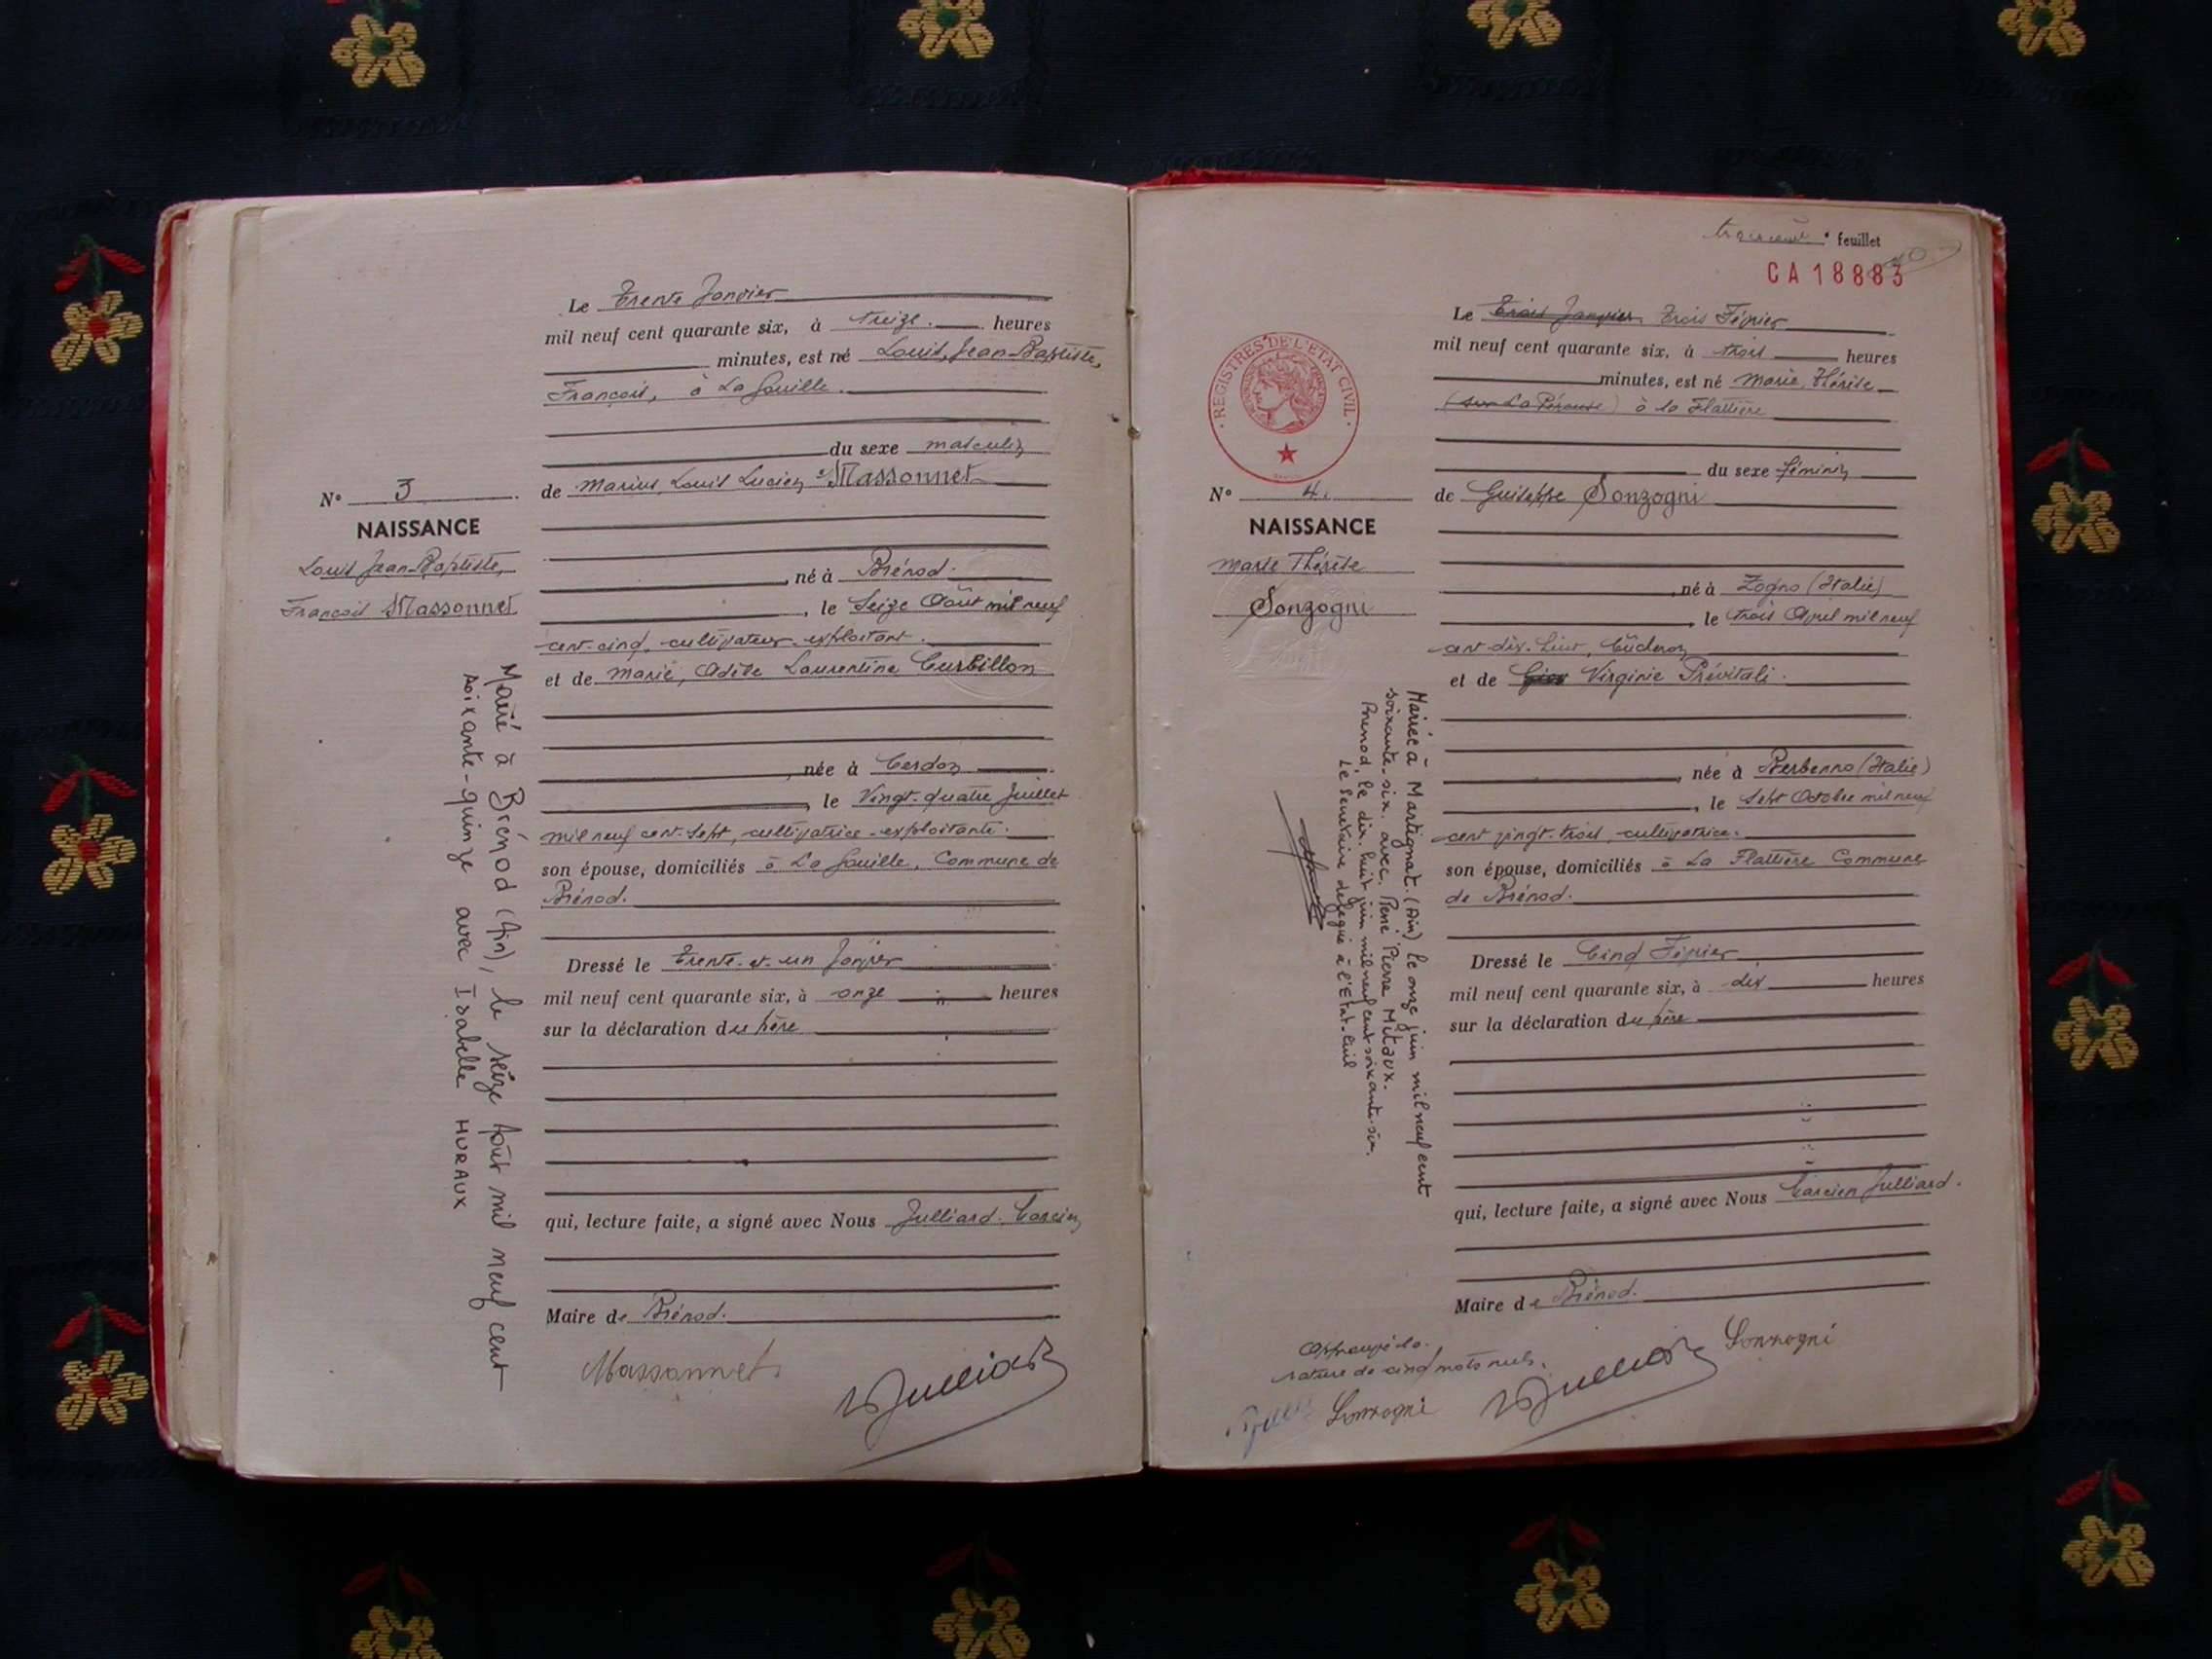 Le Trente Janvier
mil neuf cent quarante six, à treize. heures
minutes, est né Louis, Jean-Baptiste,
François, à La Gouille.
du sexe masculin
N° 3
de Marius, Louis Lucien Massonnet
NAISSANCE
Louis Jean-Baptiste,
François Massonnet
, né à Brénod.
, le Seize Août mil neuf
cent-cinq, cultivateur-exploitant.
et de Marie, Adèle Laurentine Curbillon
, née à Cerdon
, le Vingt-quatre Juillet
mil neuf cent-sept, cultivatrice-exploitante.
son épouse, domiciliés à La Gouille, Commune de
Brénod.
Dressé le Trente-et-un Janvier
mil neuf cent quarante six, à onze heures
sur la déclaration du père
qui, lecture faite, a signé avec Nous Julliard. Tarcien
Maire de Brénod.
Massonnet
Julliard
Marié à Brénod (Ain), le seize Août mil neuf cent
soixante-quinze avec Isabelle HURAUX
feuillet
CA 18883
REGISTRES DE L'ETAT CIVIL
Le Trois Janvier Trois Février
mil neuf cent quarante six, à trois heures
minutes, est né Marie, Thérèse
à la Flattière
du sexe féminin
N° 4.
de Guiseppe Sonzogni
NAISSANCE
Marie Thérèse
Sonzogni
, né à Zogno (Italie)
, le trois Avril mil neuf
cent-dix-huit, bûcheron
et de Virginie Prévitali.
, née à Berbenno (Italie)
, le Sept Octobre mil neuf
cent vingt-trois, cultivatrice.
son épouse, domiciliés à La Flattière Commune
de Brénod.
Dressé le Cinq Février
mil neuf cent quarante six, à dix heures
sur la déclaration du père
qui, lecture faite, a signé avec Nous Tarcien Julliard.
Maire de Brénod.
Mariée à Martignat. (Ain) le onze juin mil neuf cent
soixante-six. avec. René Pierre Mitaux.
Brenod, le dix-huit juin mil neuf cent soixante-six.
Le Secrétaire délégué à l'Etat-Civil
Approuvé la
rature de cinq mots nuls.
Sonzogni
Julliard
Sonzogni